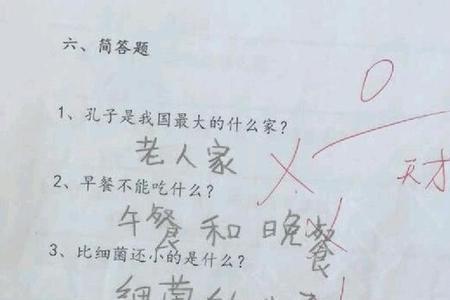 六、简答题
0
1、孔子是我国最大的什么家?
老人家
天才
2、早餐不能吃什么?
午餐和晚餐
3、比细菌还小的是什么?
细菌的儿子